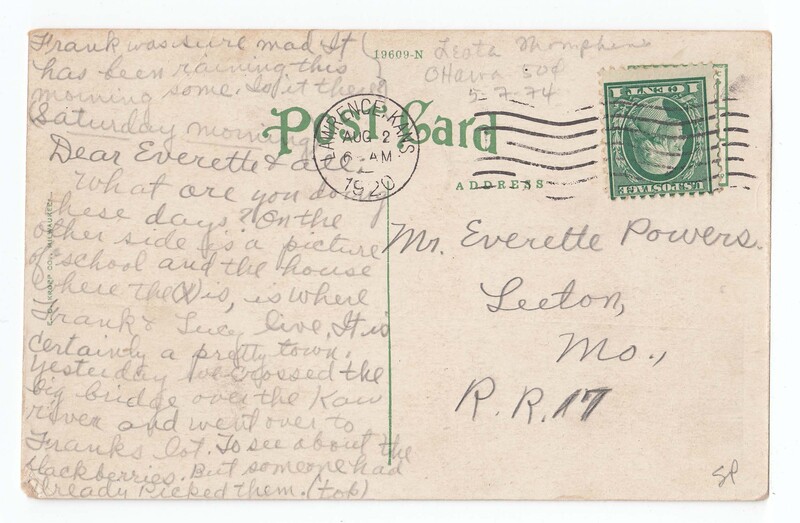 Frank was sure mad It
has been raining this
morning some. So it there
(Saturday morning)
Dear Everette & all.
What are you doing
these days? On the
other side is a picture
of school and the house
where the (X) is, is where
Frank & Lucy live. It is
certainly a pretty town.
Yesterday we crossed the
big bridge over the Kaw
river and went over to
Franks lot. To see about the
blackberries. But someone had
already picked them. (top)
19609-N
Leota
Ottawa 50¢
5-7-74
Post Card
LAWRENCE, KANS.
AUG 2
6-AM
1920
1 CENT 1
U.S. POSTAGE
ADDRESS
Mr. Everette Powers.
Leeton,
Mo.,
R.R. 17